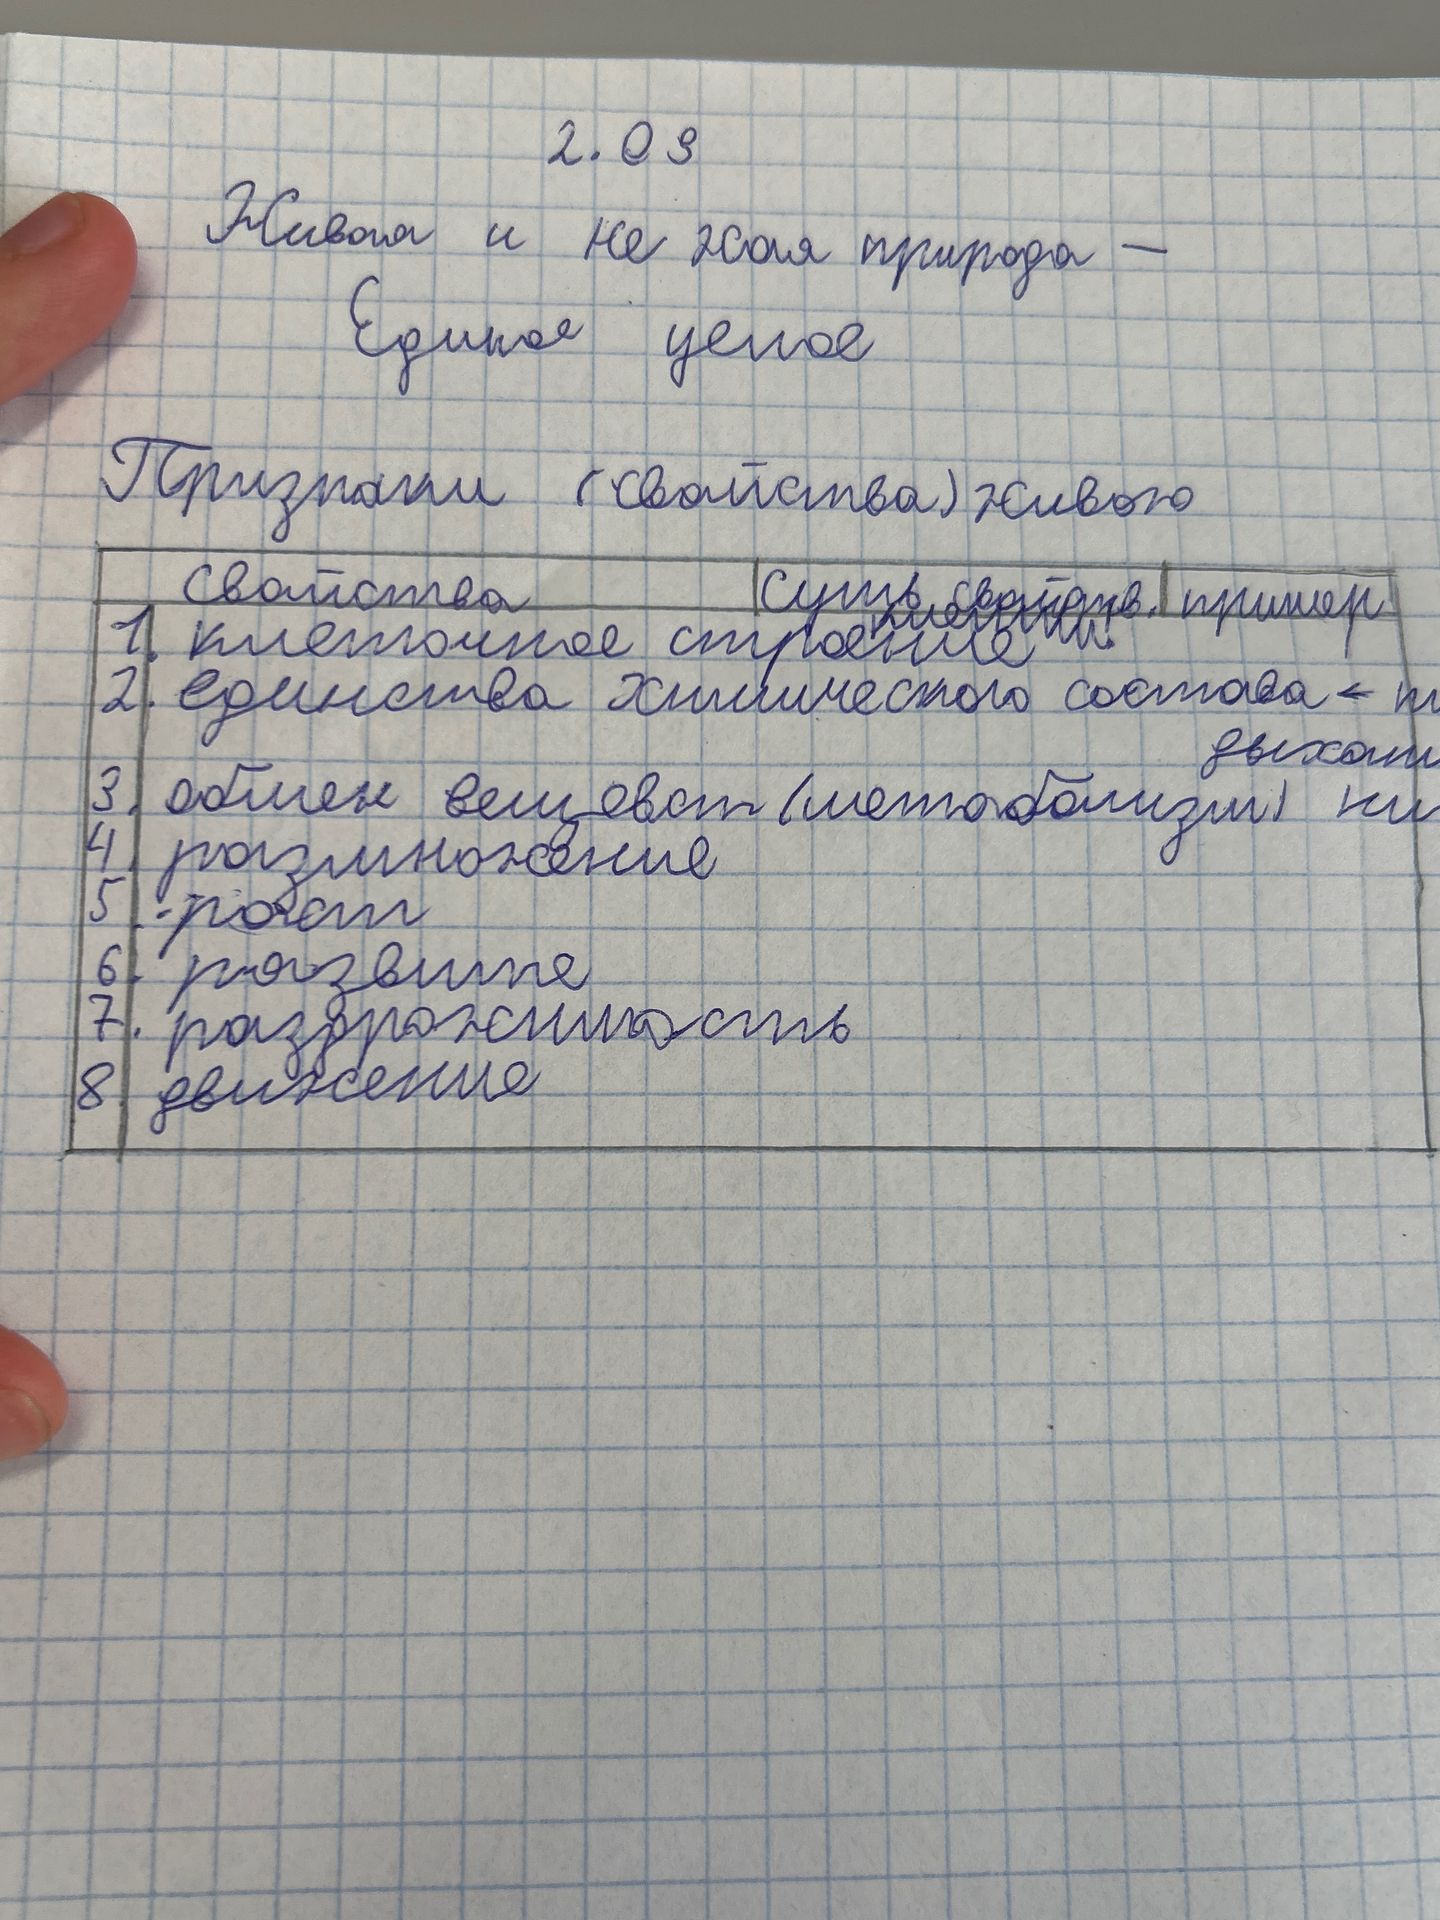 2.09
Живая и не жая природа –
Единое целое
Признаки (свойства) живого
свойства сущь свойств. пример
1. клеточное строение
2. единства химического состава
3. обмен веществ (метоболизм)
4. размножение
5. рост
6. развите
7. раздрожимость
8 движение